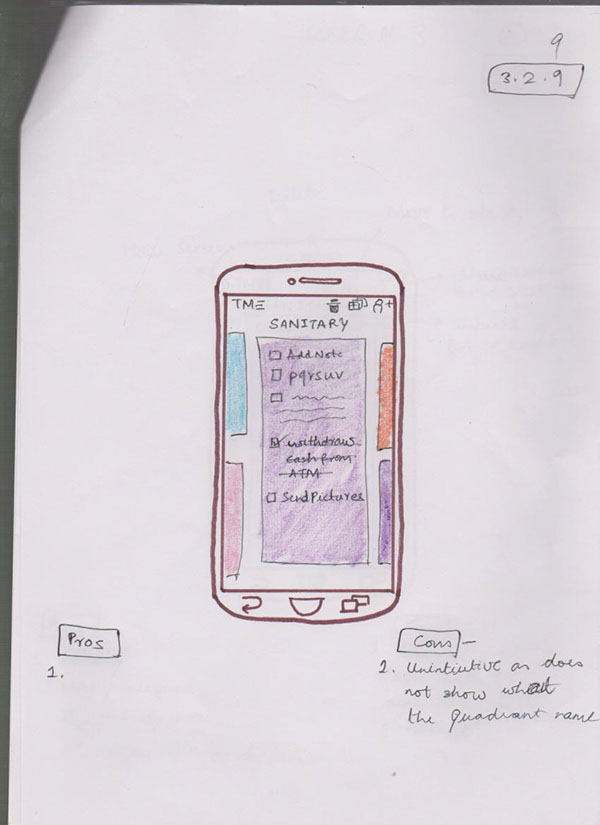 9
3.2.9
TME
SANITARY
Add Note
pqrsuv
withdraw
cash from
ATM
Send Pictures
Pros
1.
Cons –
2. Unintiutive as does
not show what
the Quadrant name